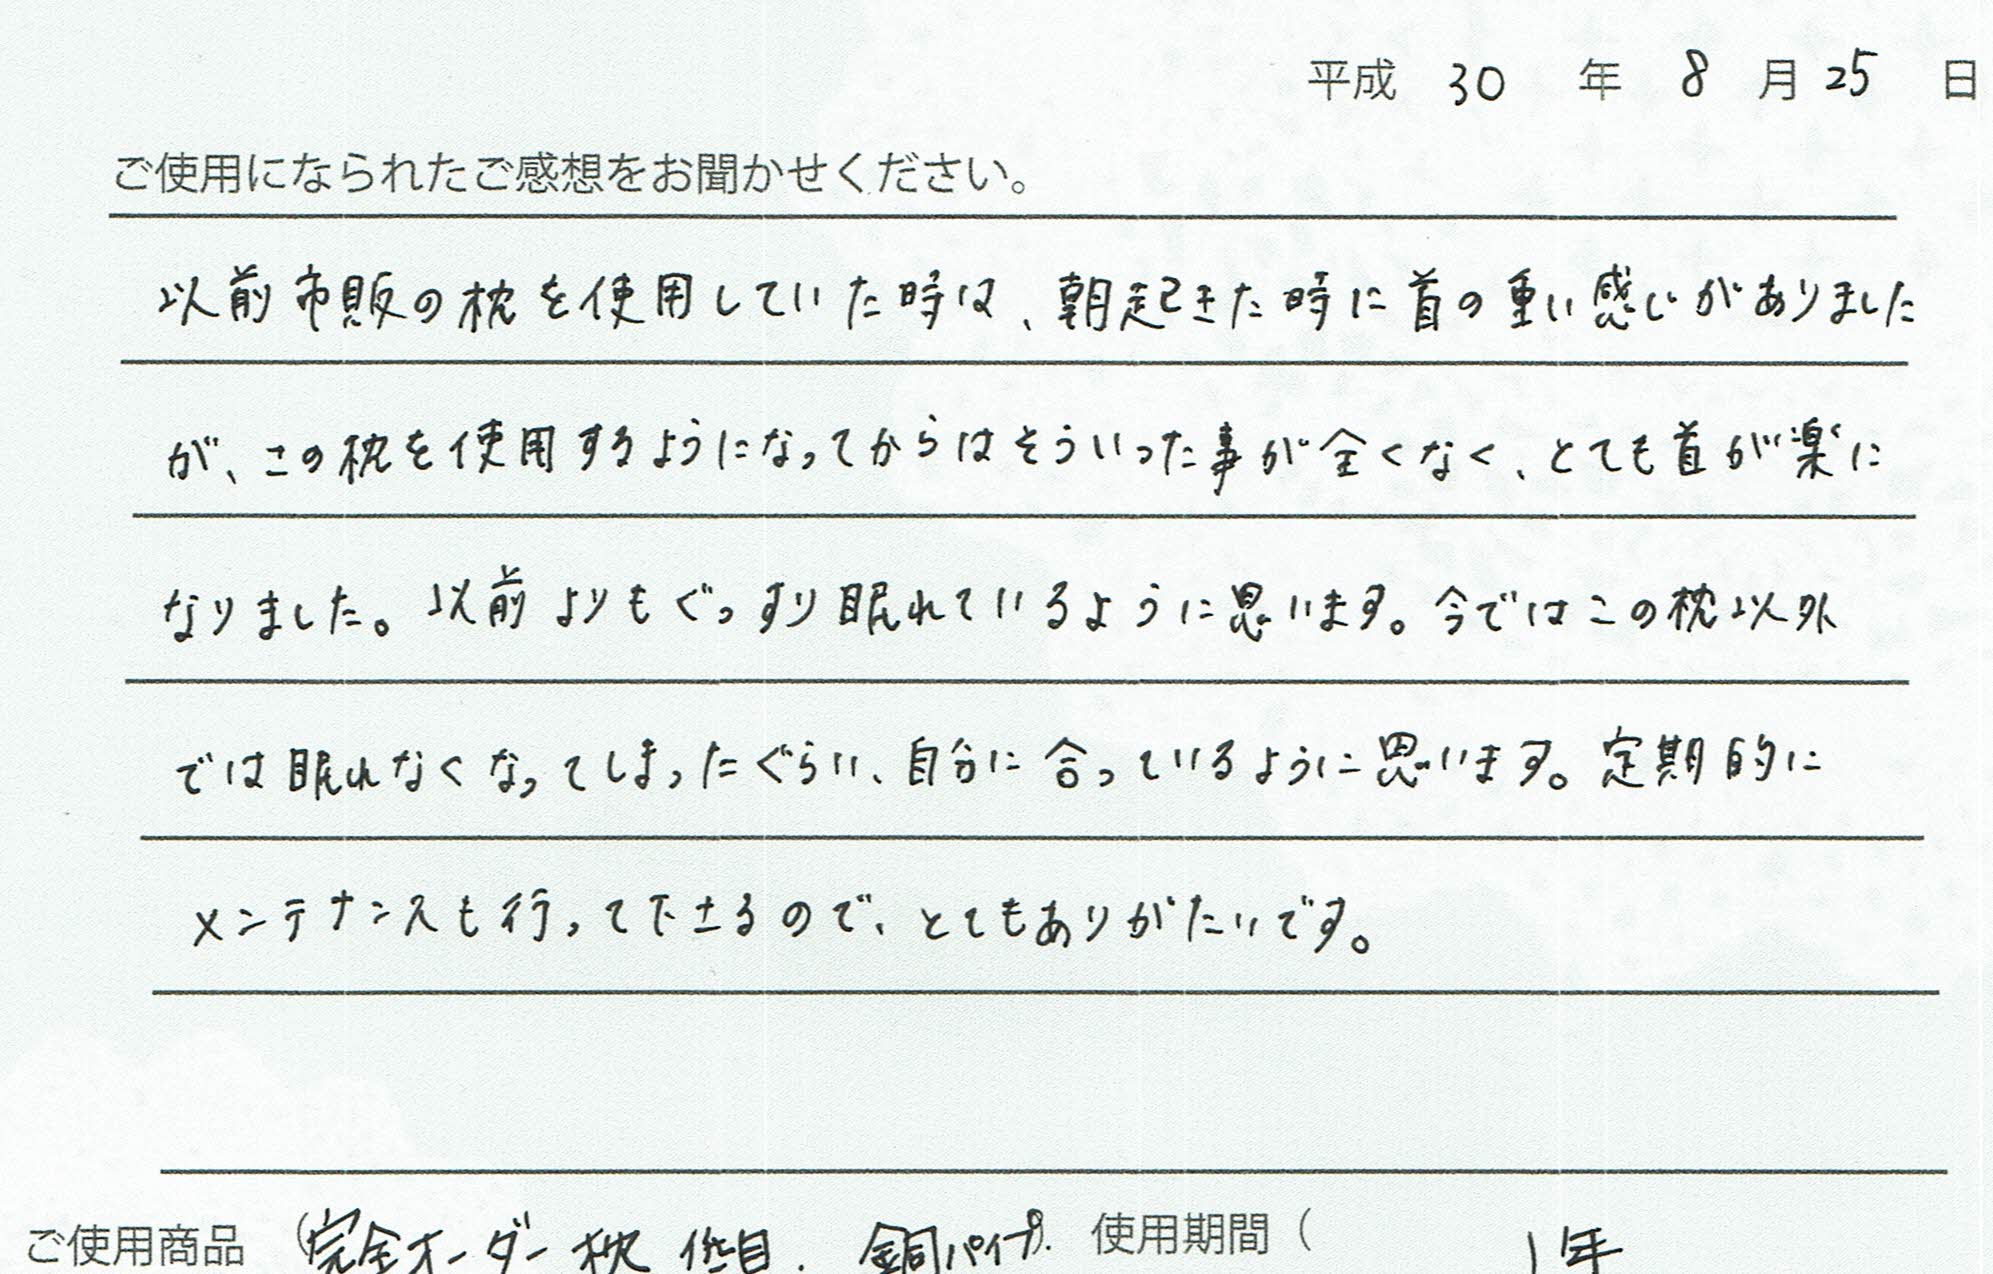 平成 30 年 8 月 25 日
ご使用になられたご感想をお聞かせください。
以前市販の枕を使用していた時は、朝起きた時に首の重い感じがありました
が、この枕を使用するようになってからはそういった事が全くなく、とても首が楽に
なりました。以前よりもぐっすり眠れているように思います。今ではこの枕以外
では眠れなくなってしまったぐらい、自分に合っているように思います。定期的に
メンテナンスも行って下さるので、とてもありがたいです。
ご使用商品 (完全オーダー枕 銅パイプ). 使用期間 ( 1年